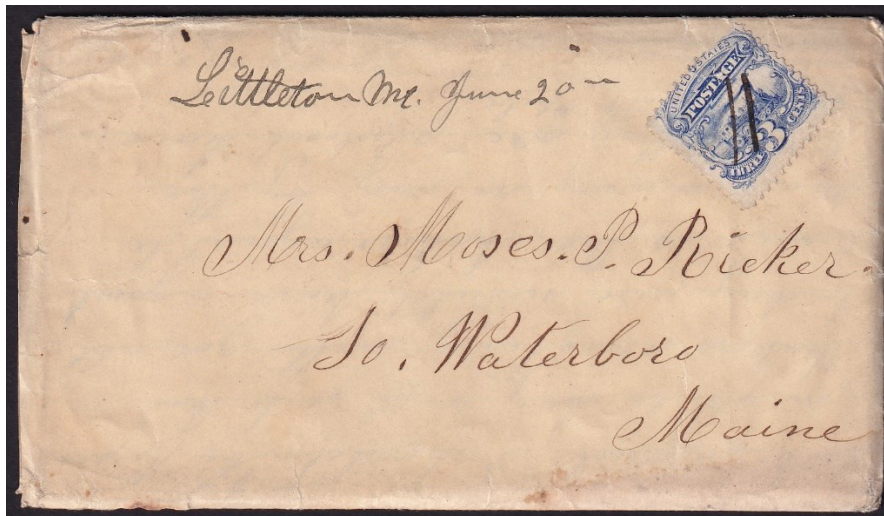 Littleton Me. June 20
UNITED STATES
POSTAGE
THREE 3 CENTS
Mrs. Moses. P. Ricker.
So. Waterboro
Maine